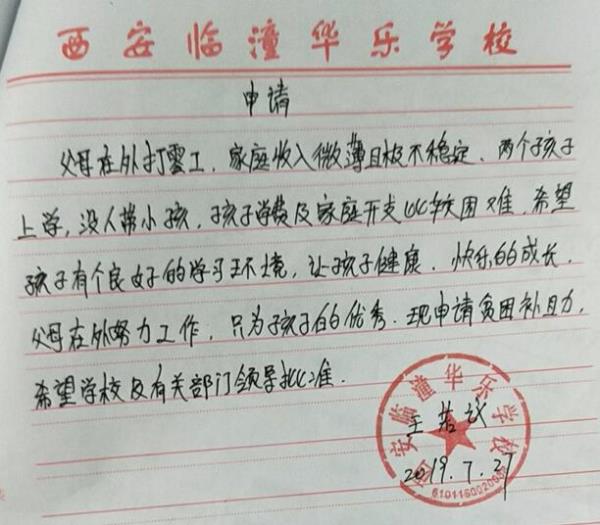 西安临潼华乐学校
申请
父母在外打零工，家庭收入微薄且极不稳定、两个孩子
上学，没人带小孩，孩子学费及家庭开支比较困难，希望
孩子有个良好的学习环境，让孩子健康、快乐的成长，
父母在外努力工作，只为孩子的优秀．现申请贫困补助，
希望学校及有关部门领导批准．
西安临潼华乐学校
2019.7.27